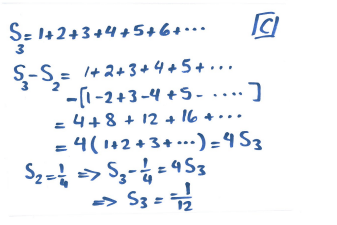 S₃ = 1+2+3+4+5+6+··· [C]
S₃-S₂ = 1+2+3+4+5+···
-[1-2+3-4+5-····]
= 4+8+12+16+···
= 4(1+2+3+···) = 4S₃
S₂=1/4 => S₃-1/4=4S₃
=> S₃ = -1/12